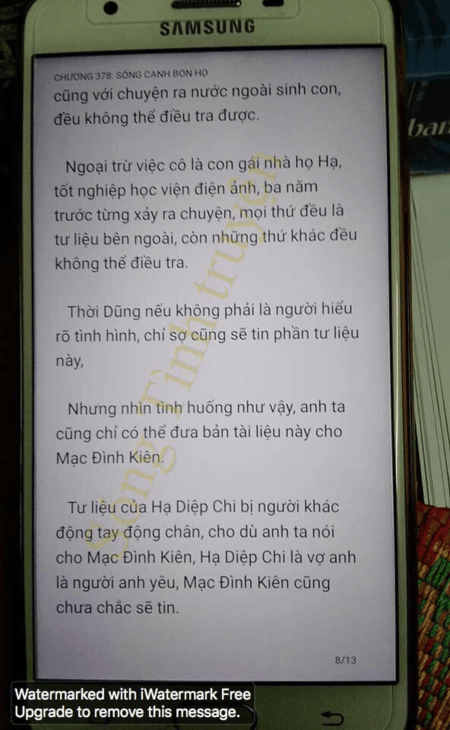 SAMSUNG
CHƯƠNG 378: SỐNG CẠNH BỌN HỌ
cũng với chuyện ra nước ngoài sinh con,
đều không thể điều tra được.
Ngoại trừ việc cô là con gái nhà họ Hạ,
tốt nghiệp học viện điện ảnh, ba năm
trước từng xảy ra chuyện, mọi thứ đều là
tư liệu bên ngoài, còn những thứ khác đều
không thể điều tra.
Thời Dũng nếu không phải là người hiểu
rõ tình hình, chỉ sợ cũng sẽ tin phần tư liệu
này,
Nhưng nhìn tình huống như vậy, anh ta
cũng chỉ có thể đưa bản tài liệu này cho
Mạc Đình Kiên.
Tư liệu của Hạ Diệp Chi bị người khác
động tay động chân, cho dù anh ta nói
cho Mạc Đình Kiên, Hạ Diệp Chi là vợ anh
là người anh yêu, Mạc Đình Kiên cũng
chưa chắc sẽ tin.
8/13
Sóng Tình truyện
ban
Watermarked with iWatermark Free
Upgrade to remove this message.